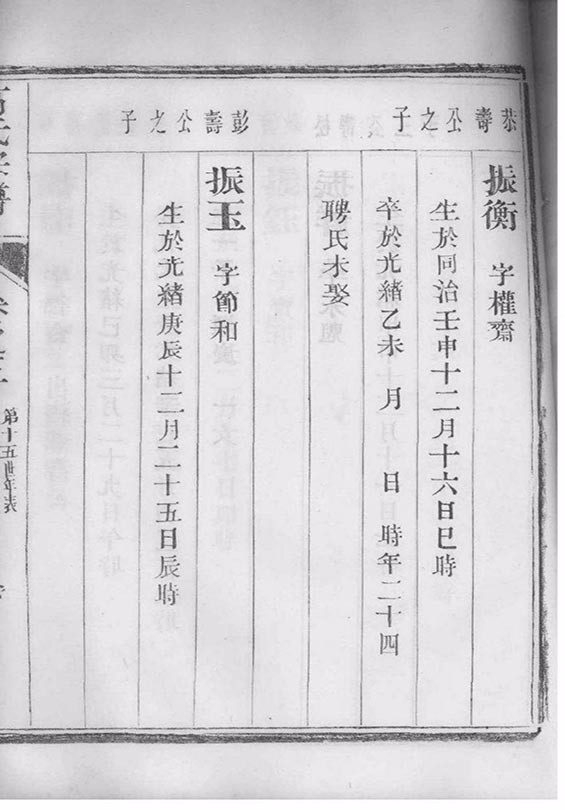 恭壽公之子
振衡 字權齋
生於同治壬申十二月十六日巳時
卒於光緒乙未 月 日 時年二十四
聘氏未娶
彭壽公之子
振玉 字節和
生於光緒庚辰十二月二十五日辰時
氏宗譜
第十五世年表